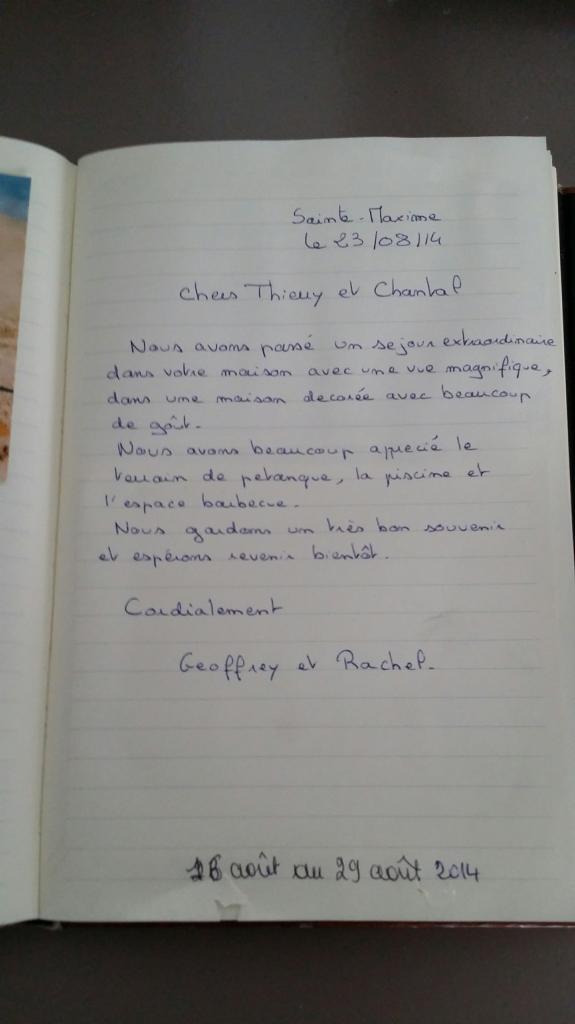 Sainte-Maxime
le 23/08/14
Chers Thierry et Chantal
Nous avons passé un sejour extraordinaire
dans votre maison avec une vue magnifique,
dans une maison decorée avec beaucoup
de goût.
Nous avons beaucoup apprecié le
terrain de petanque, la piscine et
l'espace barbecue.
Nous gardons un très bon souvenir
et espérons revenir bientôt.
Cordialement
Geoffrey et Rachel.
août au 29 août 2014